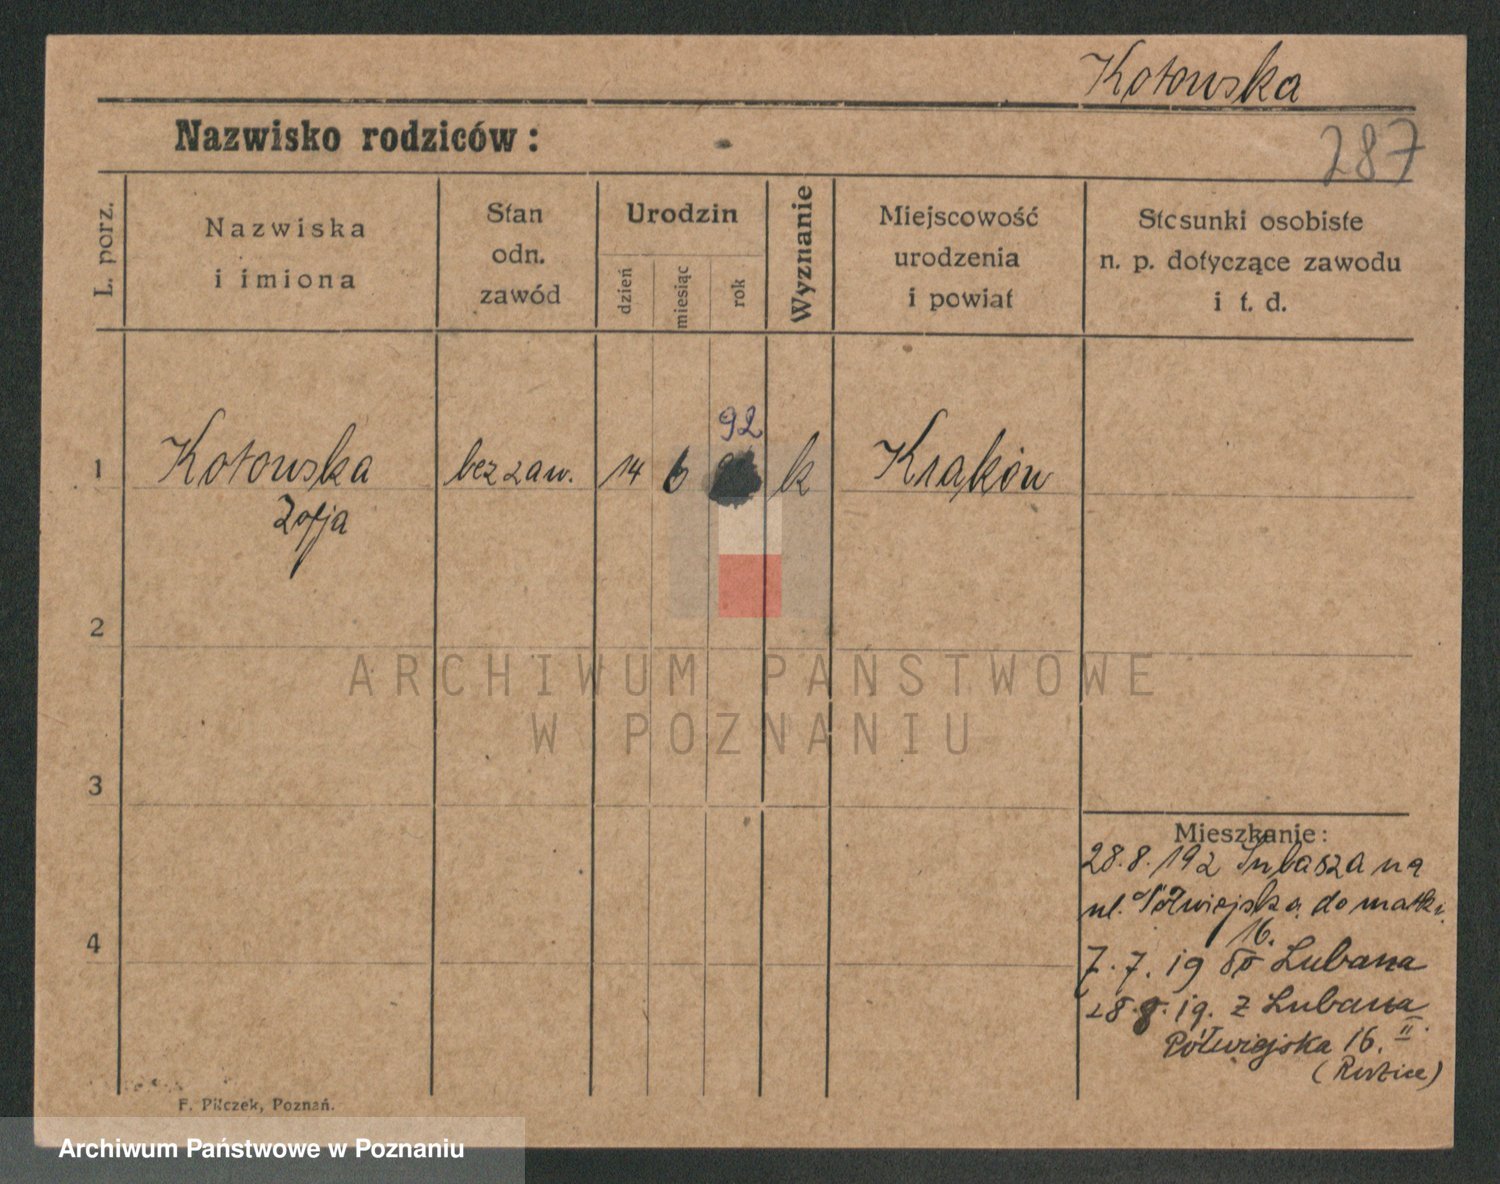 Kotowska
Nazwisko rodziców:
287
L. porz.
Nazwiska
i imiona
Stan
odn.
zawód
Urodzin
dzień
miesiąc
rok
Wyznanie
Miejscowość
urodzenia
i powiat
Stosunki osobiste
n. p. dotyczące zawodu
i t. d.
92
1
Kotowska
bez zaw.
14
6
k
Kraków
Zofja
2
ARCHIWUM PAŃSTWOWE
W POZNANIU
3
Mieszkanie:
28.8.192 na
ul. Półwiejską do matki
16.
4
7.7.19 Lubana
28.8.19. z Lubana
Półwiejska 16. II
F. Pilczek, Poznań.
Archiwum Państwowe w Poznaniu